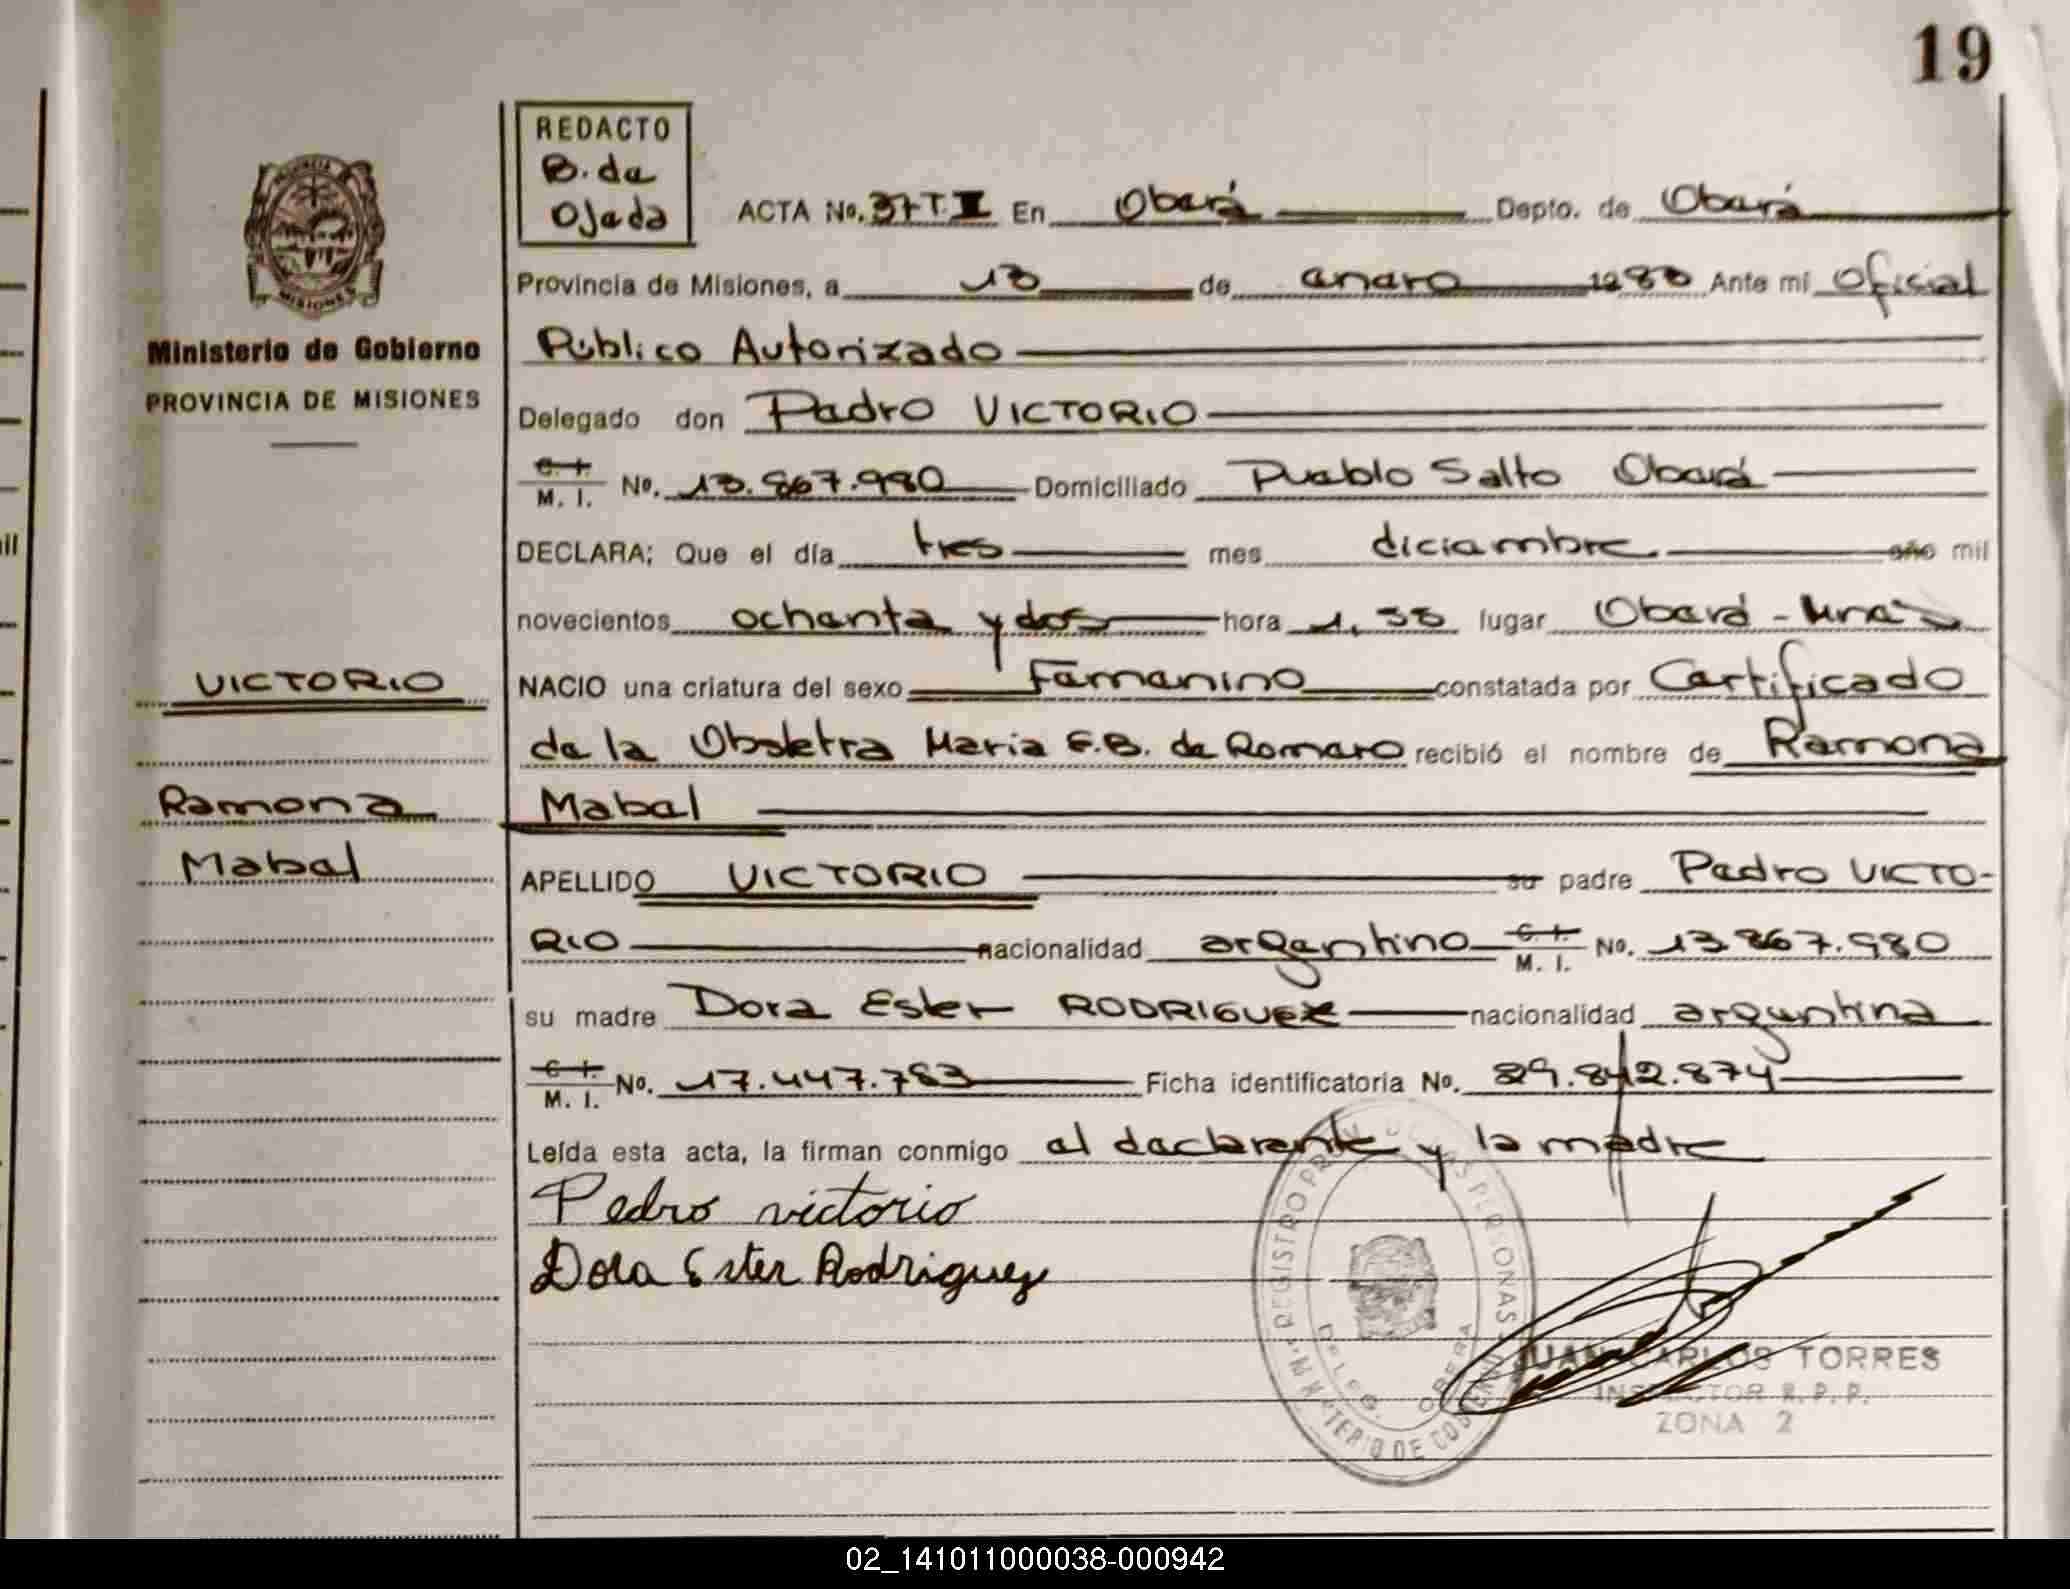 19
REDACTO
B. de
Ojeda
ACTA No. 37 T. II En Oberá Depto. de Oberá
Provincia de Misiones, a 13 de enero 1983 Ante mí Oficial
Ministerio de Gobierno
PROVINCIA DE MISIONES
Público Autorizado
Delegado don Pedro VICTORIO
C. I.
M. I. No. 13.867.980 Domiciliado Pueblo Salto Oberá
DECLARA; Que el día tres mes diciembre año mil
novecientos ochenta y dos hora 1,55 lugar Oberá - Mnes
VICTORIO
NACIO una criatura del sexo Femenino constatada por Certificado
de la Obstetra Maria E.B. de Romero recibió el nombre de Ramona
Ramona
Mabel
Mabel
APELLIDO VICTORIO su padre Pedro VICTO-
RIO nacionalidad argentino C. I. M. I. No. 13.867.980
su madre Dora Ester RODRIGUEZ nacionalidad argentina
C. I.
M. I. No. 17.447.783 Ficha identificatoria No. 29.842.874
Leída esta acta, la firman conmigo el declarante y la madre
Pedro victorio
Dora Ester Rodriguez
REGISTRO PROV. DE LAS PERSONAS
MINISTERIO DE GOBIERNO
DELEG. OBERA
JUAN CARLOS TORRES
INSPECTOR R.P.P.
ZONA 2
02_141011000038-000942